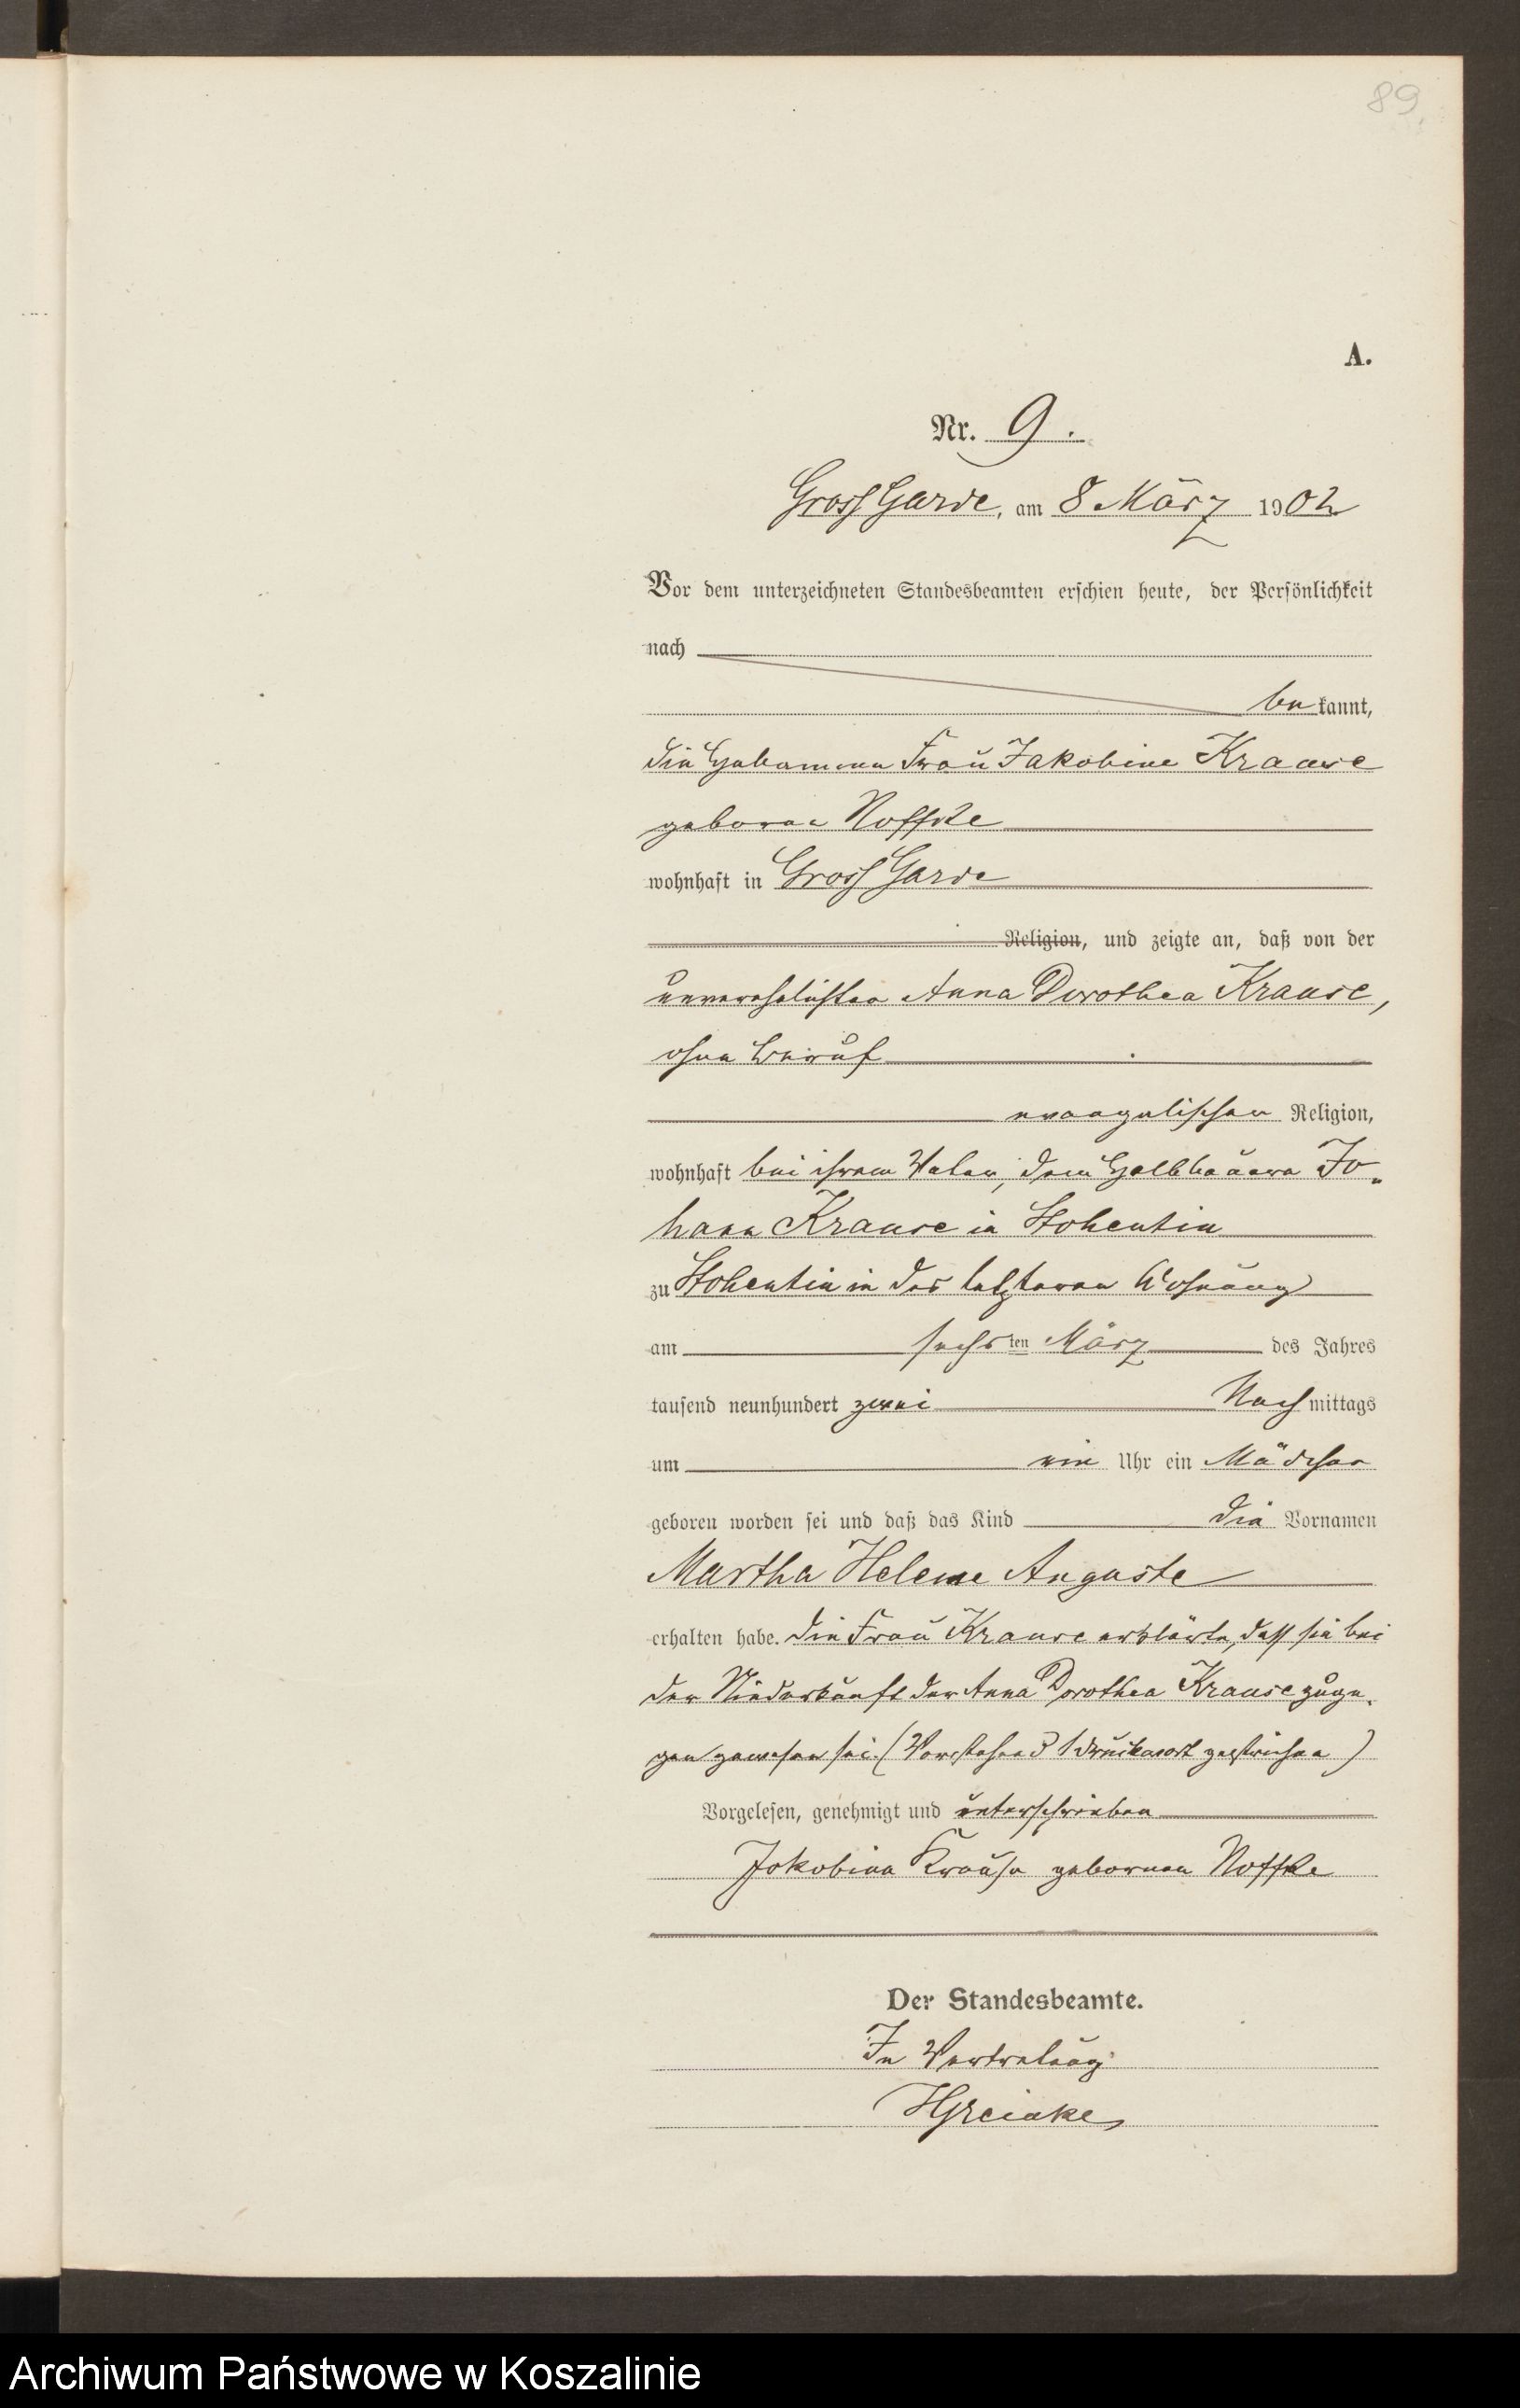 89.
A.
Nr. 9.
Gross Garde, am 8 März 1902
Vor dem unterzeichneten Standesbeamten erschien heute, der Persönlichkeit
nach
bekannt,
die Hebamme Frau Jakobine Krause
geborne Noffke
wohnhaft in Gross Garde
Religion, und zeigte an, daß von der
unverehelichten Anna Dorothea Krause,
ohne Beruf
evangelischen Religion,
wohnhaft bei ihrem Vater, dem Halbbauern Jo-
hann Krause in Stohentin
zu Stohentin in des letzteren Wohnung
am sechsten März des Jahres
tausend neunhundert zwei Nachmittags
um ein Uhr ein Mädchen
geboren worden sei und daß das Kind die Vornamen
Martha Helene Auguste
erhalten habe. Die Frau Krause erklärte, dass sie bei
der Niederkunft der Anna Dorothea Krause zuge-
gen gewesen sei. (Vorstehend 1 Druckwort gestrichen)
Vorgelesen, genehmigt und unterschrieben
Jakobine Krause geborene Noffke
Der Standesbeamte.
In Vertretung
Archiwum Państwowe w Koszalinie